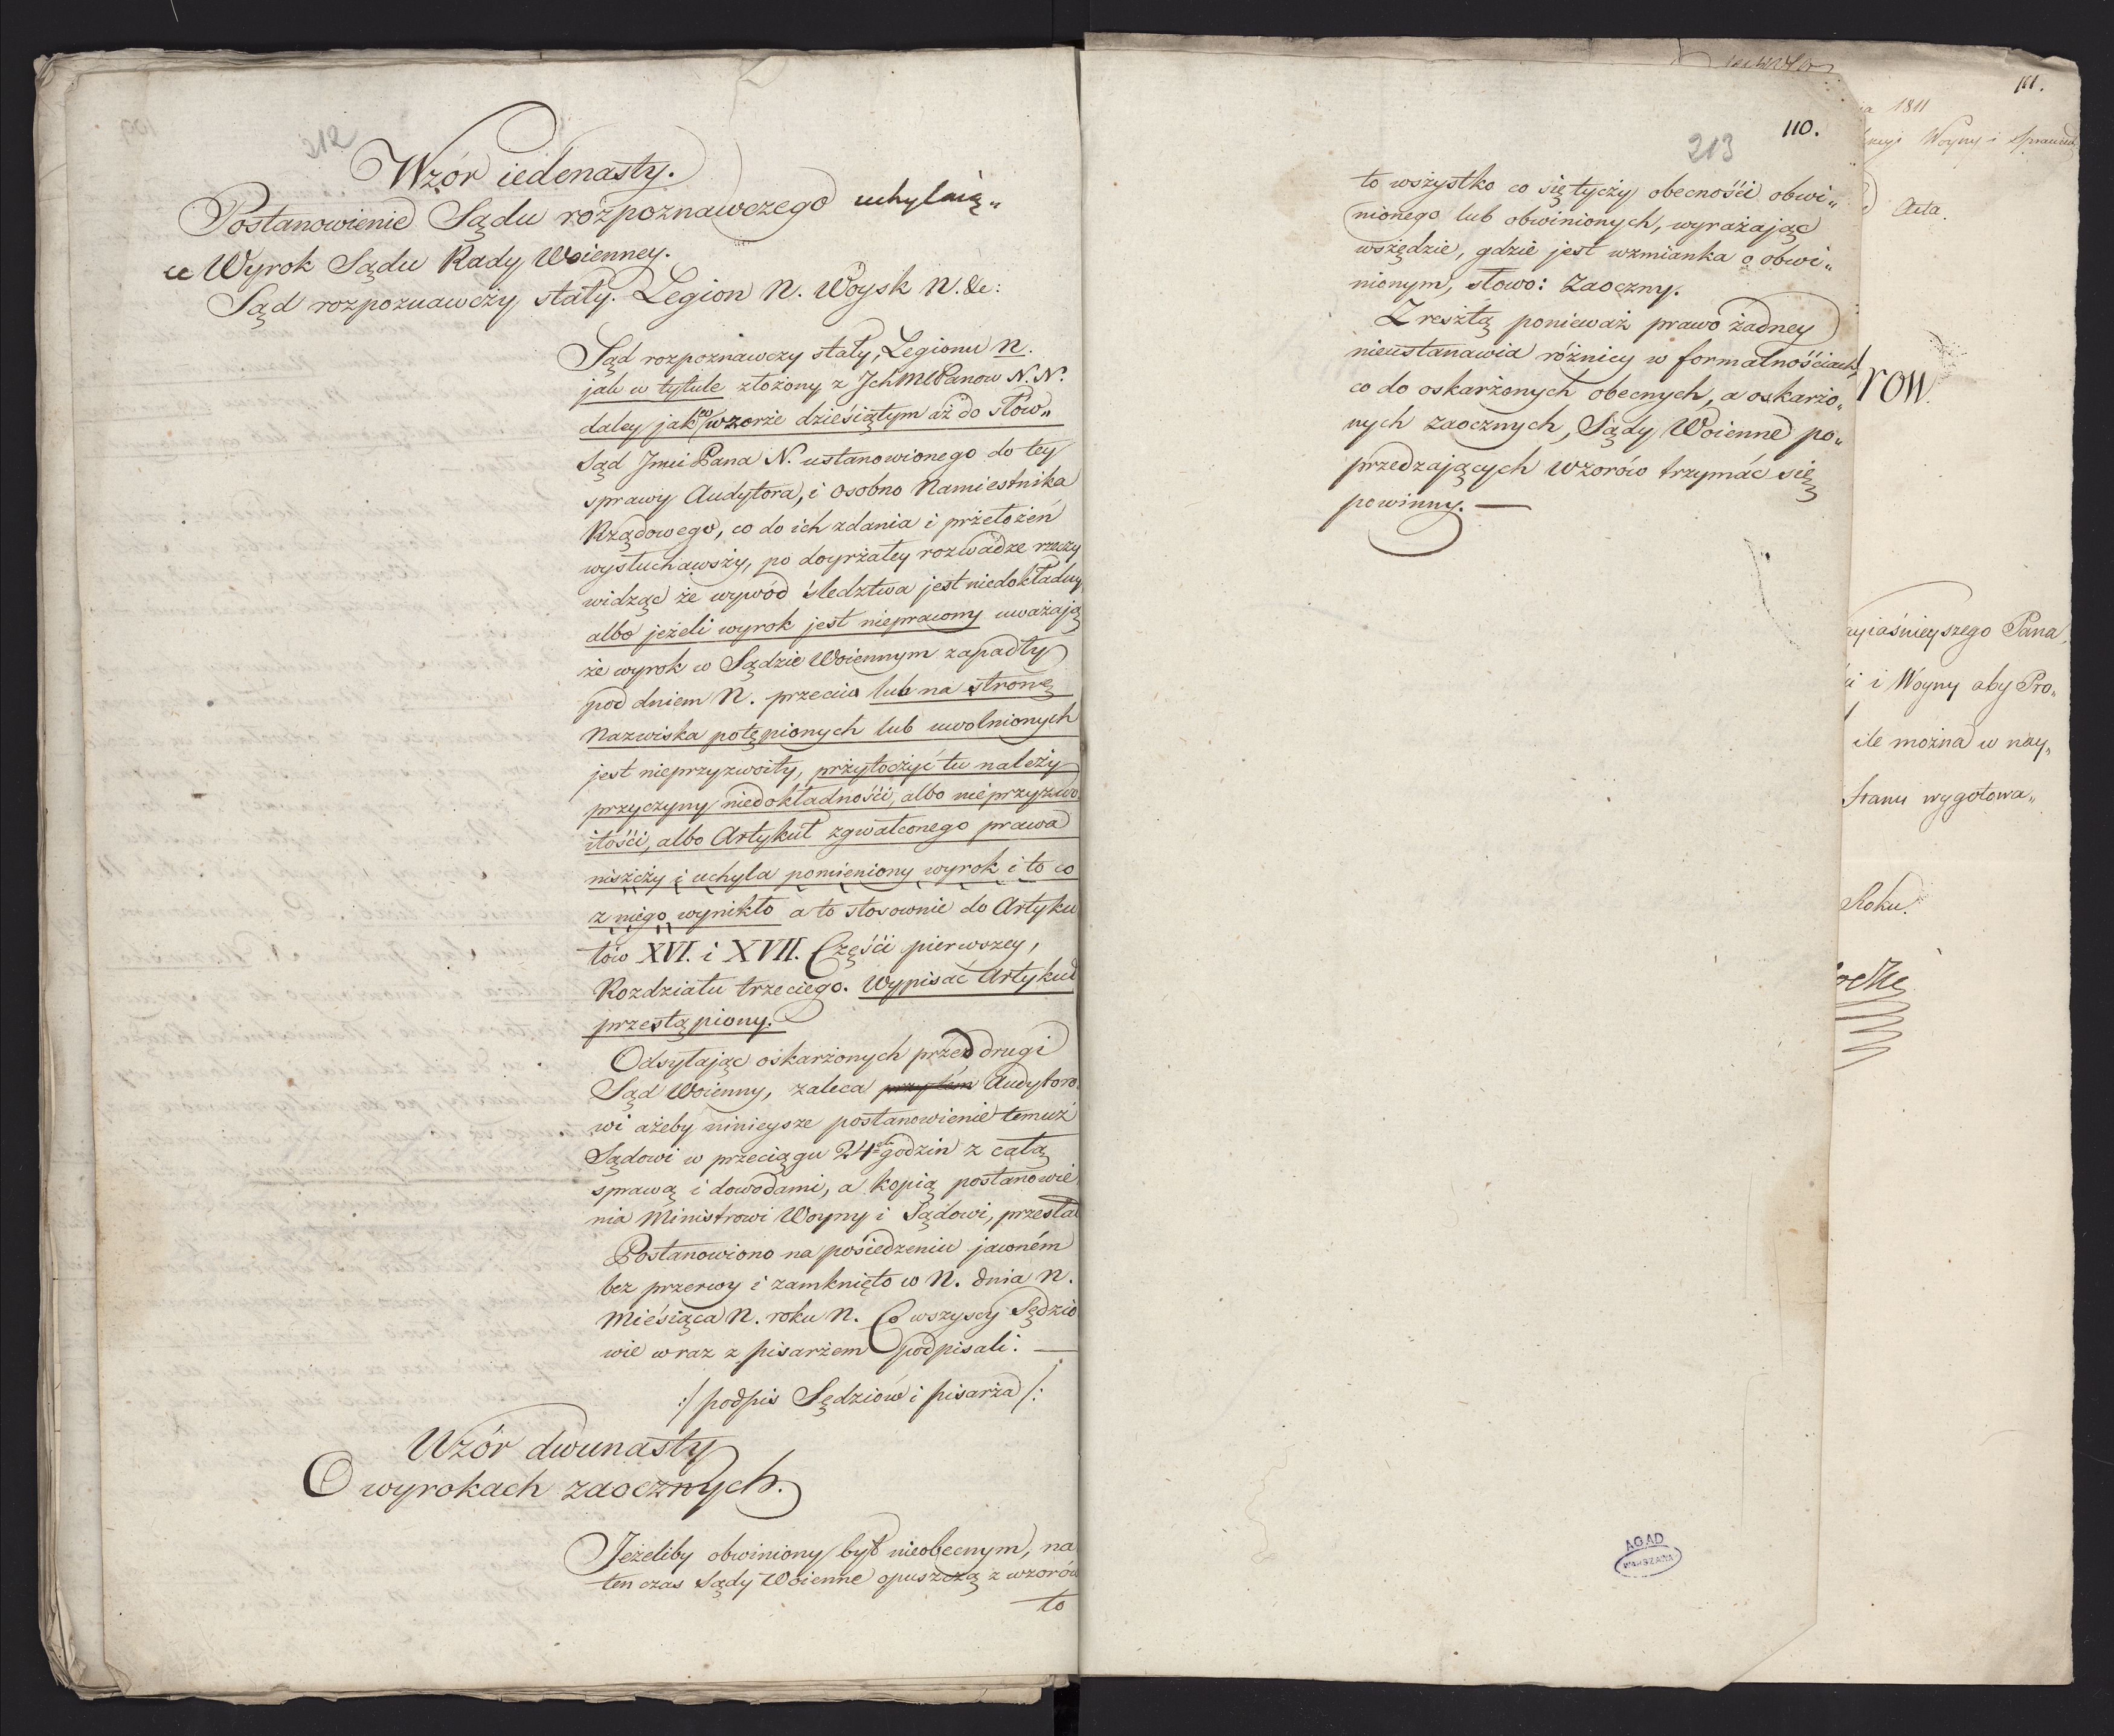 212
Wzór iedenasty.
Postanowienie Sądu rozpoznawczego uchylaią„
ce Wyrok Sądu Rady Woienney.
Sąd rozpoznawczy stały. Legion N. Woysk N. &c:
Sąd rozpoznawczy stały, Legionu N.
jak w tytule złożony z Jch MPanow N. N.
daley jak w wzorze dziesiątym aż do słow„
Sąd Jmci Pana N. ustanowionego do tey
sprawy Audytora, i osobno Namiestnika
Rządowego, co do ich zdania i przełożeń
wysłuchawszy, po doyrzałey rozwadze rzeczy
widząc że wywód śledztwa jest niedokładny
albo jeżeli wyrok jest nieprawny uważają
że wyrok w Sądzie Woiennym zapadły
pod dniem N. przeciw lub na stronę
Nazwiska potępionych lub uwolnionych
jest nieprzyzwoity, przytoczyć tu należy
przyczyny niedokładności, albo nieprzyzwo
itości, albo Artykuł zgwałconego prawa
niszczy i uchyla pomieniony wyrok i to co
z niego wynikło a to stosownie do Artyku
łów XVI. i XVII. Części pierwszey,
Rozdziału trzeciego. Wypisać Artykuł
przestąpiony.
Odsyłając oskarżonych przed drugi
Sąd Woienny, zaleca przytém Audytoro
wi ażeby ninieysze postanowienie temuż
Sądowi w przeciągu 24ch godzin z całą
sprawą i dowodami, a kopią postanowie
nia Ministrowi Woyny i Sądowi, przesłał
Postanowiono na posiedzeniu jawném
bez przerwy i zamknięto w N. dnia N.
Miesiąca N. roku N. Co wszyscy Sędzio
wie wraz z pisarzem podpisali. —
:/ podpis Sędziów i pisarza /:
Wzór dwunasty
O wyrokach zaocznych.
Jeżeliby obwiniony był nieobecnym, na
ten czas Sądy Woienne opuszczą z wzorów
to
110.
213
to wszystko co się tyczy obecności obwi„
nionego lub obwinionych, wyrażając
wszędzie, gdzie jest wzmianka o obwi„
nionym, słowo: Zaoczny.
Zresztą ponieważ prawo żadney
nieustanawia różnicy w formalnościach,
co do oskarżonych obecnych, a oskarżo„
nych zaocznych, Sądy Woienne po„
przedzających wzorów trzymać się
powinny. —
AGAD
WARSZAWA
111.
ia 1811
Woyny i Sprawied
Acta.
row.
ayiaśnieyszego Pana
i Woyny aby Pro„
ile można w nay„
Stanu wygotowa„
Roku.